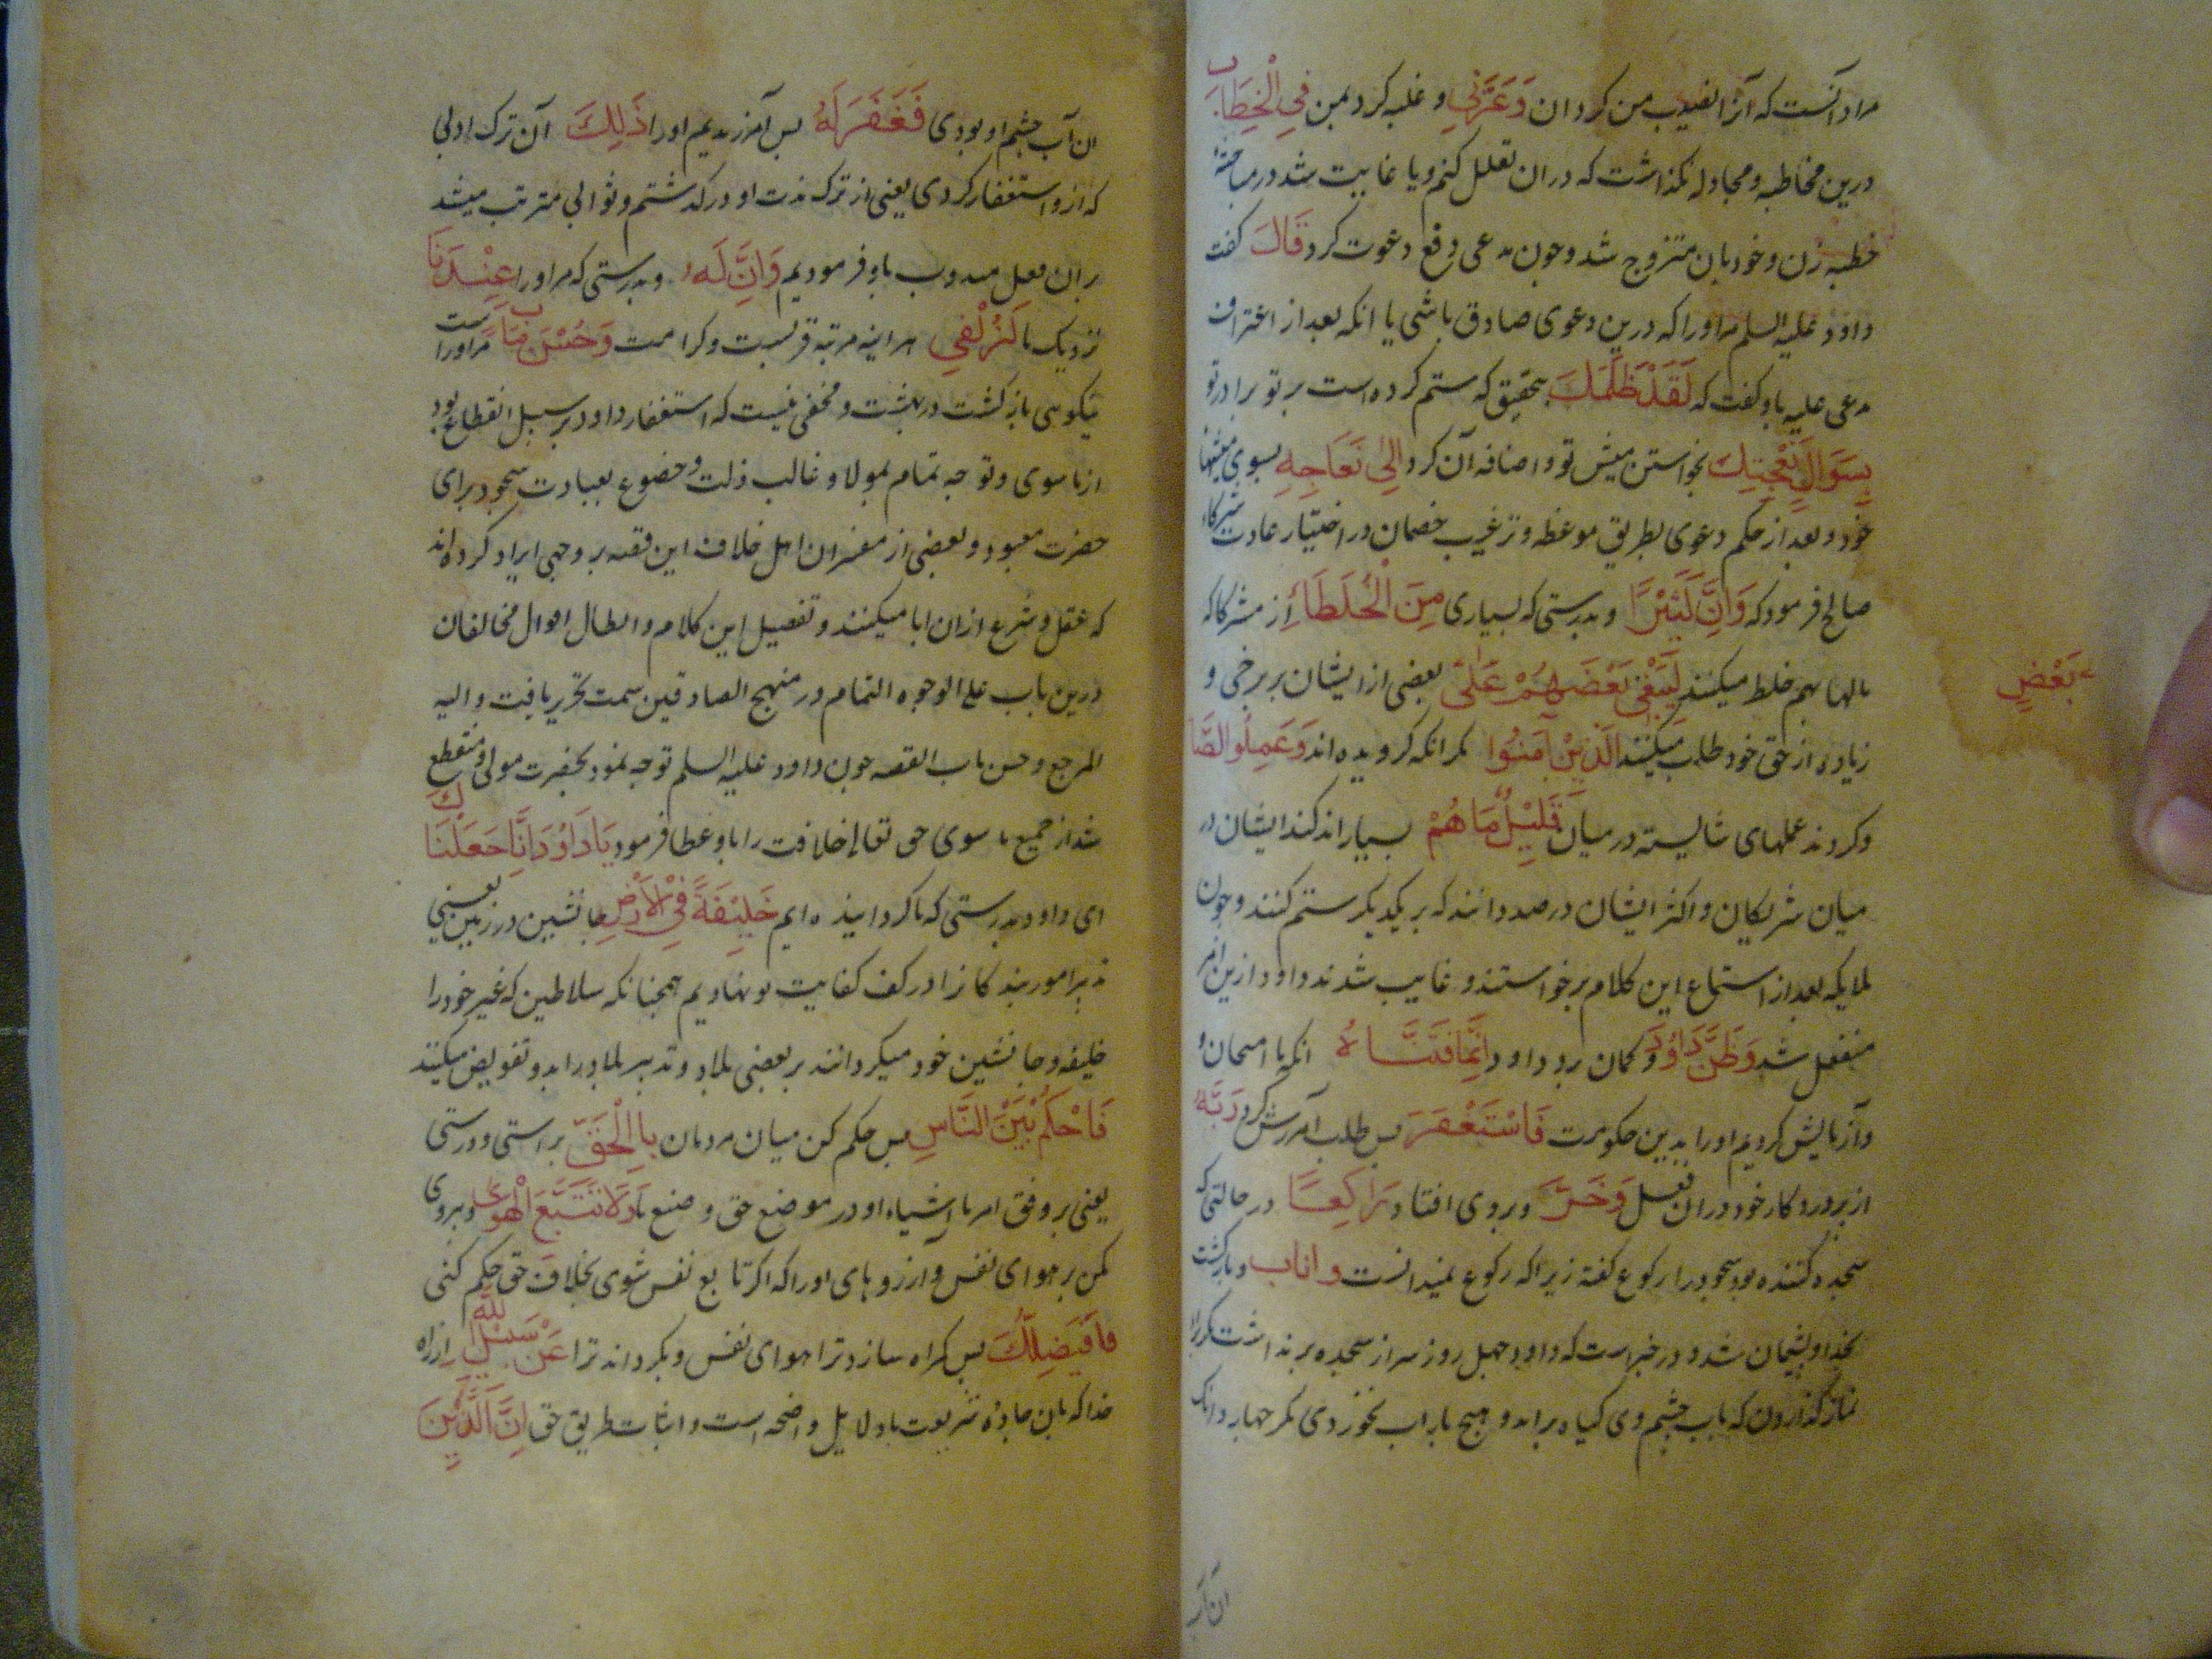 مراد آنست که آنرا نصیب من کردان وَعَزَّنِي و غلبه کرد بمن فِي الْخِطَابِ
درین مخاطبه و مجادله نکذاشت که دران تعلل کنم و یا غایبت شد در مباحثهٔ
خطبه زن و خود بان متزوج شد و چون مدعی رفع دعوت کرد قَالَ کفت
داود علیه السلم مر اورا که درین دعوی صادق باشی یا انکه بعد از اعتراف
مدعی علیه باو کفت که لَقَدْ ظَلَمَكَ بتحقیق که ستم کرده است بر تو برادر تو
بِسُوَالِ نَعْجَتِكَ بخواستن میش تو و اضافه آن کرد اِلَى نِعَاجِهِ بسوی میشهای
خود و بعد از حکم دعوی بطریق موعظه و ترغیب خصمان در اختیار عادت شرکاء
صالح فرمود که وَاِنَّ كَثِيْرًا و بدرستی که بسیاری مِنَ الْخُلَطَاءِ از شرکا که
مالها بهم خلط میکنند لَيَبْغِي بَعْضُهُمْ عَلَى بعضی از ایشان بر برخی و
بَعْضٍ
زیاده از حق خود طلب میکنند الَّذِيْنَ آمَنُوا مکر انکه کرویده اند وَعَمِلُوا الصَّا
و کردند عملهای شایسته در میان قَلِيْلٌ مَا هُمْ بسیار اندکند ایشان در
میان شریکان و اکثر ایشان در صدد انند که بر یکدیکر ستم کنند و چون
ملایکه بعد از استماع این کلام برخواستند و غایب شدند داود ازین امر
منفعل شد وَظَنَّ دَاوُدُ و کمان برد داود اَنَّمَا فَتَنَّاهُ انکه ما امتحان
و آزمایش کردیم اورا بدین حکومت فَاسْتَغْفَرَ پس طلب آمرزش کرد رَبَّهُ
از پروردکار خود دران فعل وَخَرَّ و بروی افتاد رَاكِعًا در حالتی که
سجده کننده بود سجود را رکوع کفته زیرا که رکوع مبدا انست و اناب و بازکشت
بخدا و پشیمان شد و در خبر است که داود چهل روز سر از سجده بر نداشت مکر برای
نماز کذاردن که باب چشم وی کیاه برامد و هیچ بار اب نخوردی مکر چهار دانک
ان آب
ان آب چشم او بودی فَغَفَرْنَا لَهُ پس آمرزیدیم اورا ذَلِكَ آن ترک اولی
که ازو استغفار کردی یعنی از ترک ندب او درکذشتم و ثوابی مترتب میشد
بران فعل مندوب باو فرمودیم وَاِنَّ لَهُ و بدرستی که مر اورا عِنْدَنَا
نزدیک ما لَزُلْفَى هر اینه مرتبه قربست و کرامت وَحُسْنَ مَآبٍ مر اوراست
نیکویی بازکشت در بهشت و مخفی نیست که استغفار داود بر سبیل انقطاع بود
از ما سوی و توجه تمام بمولا و غالب ذلت و خضوع بعبادت سجود برای
حضرت معبود و بعضی از مفسران اهل خلاف این قصه بر وجهی ایراد کرده اند
که عقل و شرع ازان ابا میکنند و تفصیل این کلام و ابطال اقوال مخالفان
درین باب علی الوجوه التمام در منهج الصادقین سمت تحریر یافت و الیه
المرجع و حسن ماب القصه چون داود علیه السلم توجه نمود بحضرت مولی و منقطع
شد از جمیع ما سوی حق تعالی خلافت را باو عطا فرمود يَا دَاوُدُ اِنَّا جَعَلْنَاكَ
ای داود بدرستی که ما کردانیده ایم خَلِيْفَةً فِي الْاَرْضِ جانشین در زمین یعنی
تدبیر امور بندکانرا در کف کفایت تو نهادیم همچنانکه سلاطین که غیر خود را
خلیفه و جانشین خود میکردانند بر بعضی بلاد و تدبیر بلاد را بدو تفویض میکنند
فَاحْكُمْ بَيْنَ النَّاسِ پس حکم کن میان مردمان بِالْحَقِّ براستی و درستی
یعنی بر وفق امر ما اشیاء او در موضع حق وضع نما وَلَا تَتَّبِعِ الْهَوَى و پیروی
مکن بر هوای نفس و آرزوهای اورا که اکر تابع نفس شوی بخلاف حق حکم کنی
فَيُضِلَّكَ پس کمراه سازد ترا هوای نفس و بکرداند ترا عَنْ سَبِيْلِ اللّٰهِ از راه
خدا که بان جادهٔ شریعت با دلایل واضحه است و اثبات طریق حق اِنَّ الَّذِيْنَ